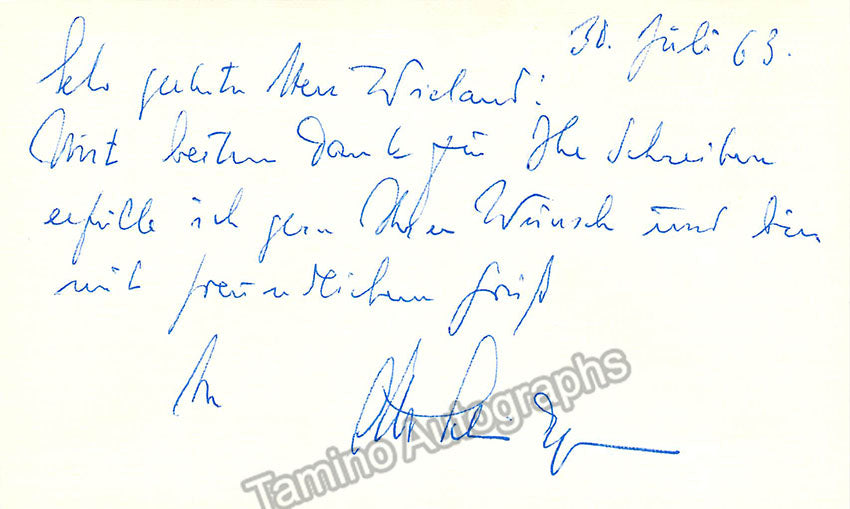 30. Juli 63.
Sehr geehrter Herr Wieland!
Mit bestem Dank für Ihr Schreiben
erfülle ich gern Ihren Wunsch und bin
mit freundlichem Gruß
Ihr
Tamino Autographs